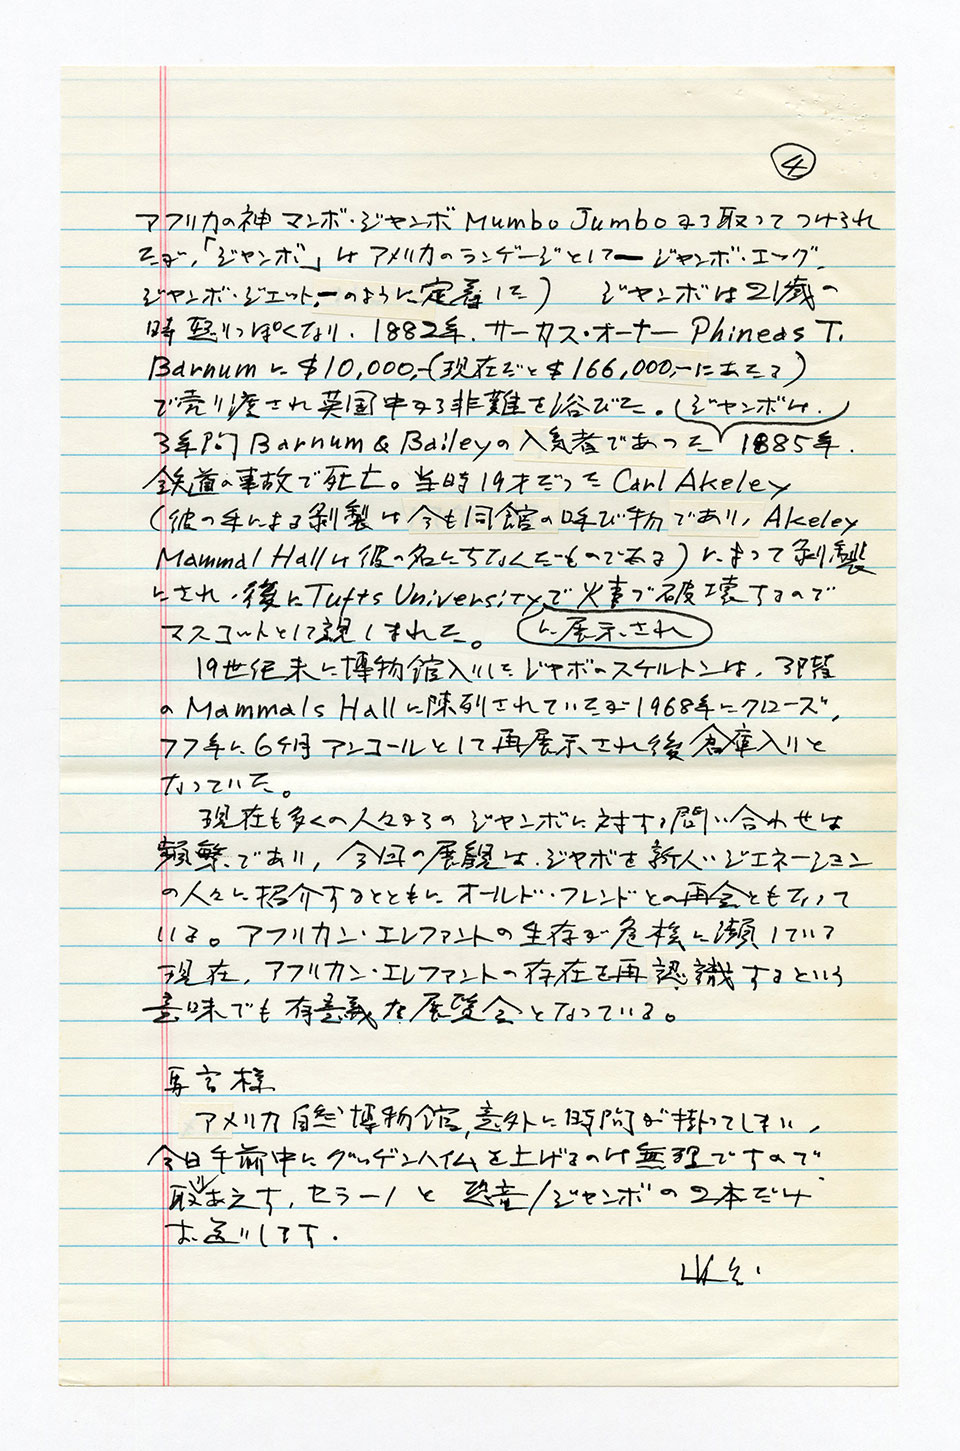 ④
アフリカの神 マンボ・ジャンボ Mumbo Jumboから取ってつけられ
たが,「ジャンボ」はアメリカのランゲージとしてージャンボ・エッグ,
ジャンボ・ジェット,ーのように定着した) ジャンボは21歳の
時怒りっぽくなり, 1882年, サーカス・オーナー Phineas T.
Barnumに$10,000,-(現在だと$166,000,-にあたる)
で売り渡され英国中から非難を浴びた。(ジャンボは,
3年間Barnum & Baileyの人気者であった) 1885年,
鉄道の事故で死亡。当時19才だったCarl Akeley
(彼の手による剥製は今も同館の呼び物であり, Akeley
Mammal Hallは彼の名にちなんだものである)によって剥製
にされ,後にTufts Universityで火事で破壊するので
マスコットとして親しまれた。 に展示され
19世紀末に博物館入りしたジャボのスケルトンは, 3階
のMammals Hallに陳列されていたが1968年にクローズ,
77年に6ケ月アンコールとして再展示され後倉庫入りと
なっていた。
現在も多くの人々からのジャンボに対する問い合わせは
頻繁であり, 今回の展観は,ジャボを新しいジェネーション
の人々に紹介するとともにオールド・フレンドとの再会ともなって
いる。アフリカン・エレファントの生存が危機に瀕している
現在, アフリカン・エレファントの存在を再認識するという
意味でも有意義な展覧会となっている。
様
アメリカ自然博物館,意外に時間が掛ってしまい,
今日午前中にグッゲンハイムを上げるのは無理ですので
取りあえず, セラーノと恐竜/ジャンボの2本だけ
お送りします.